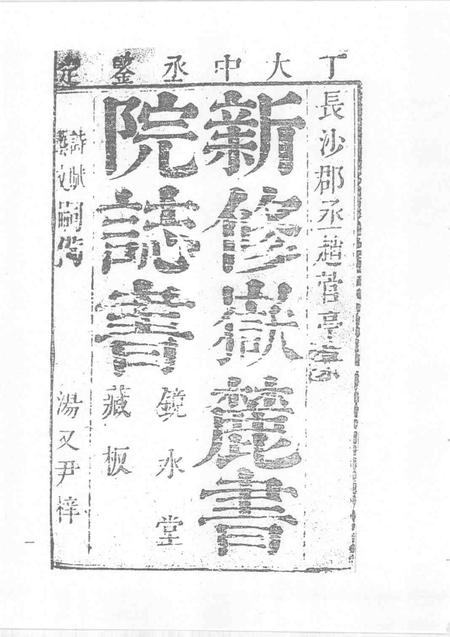 丁大中丞鑒定
長沙郡丞趙
新修嶽麓書
院誌書
鏡水堂
藏板
詩賦
嗣
湯又尹梓